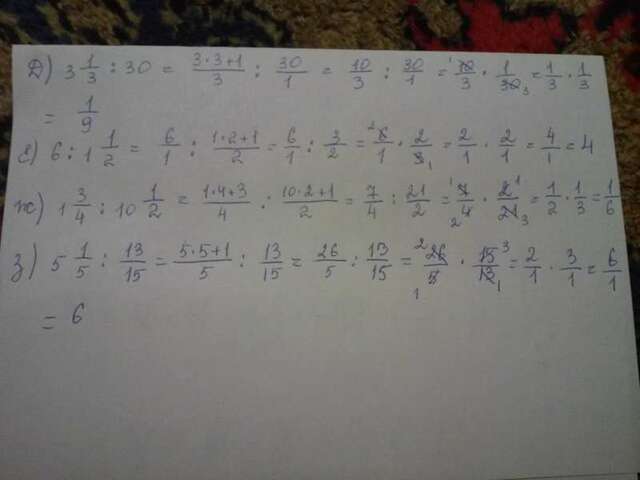 Д) 3 1/3 : 30 = (3·3+1)/3 : 30/1 = 10/3 : 30/1 = ¹10/3 · 1/30₃ = 1/3 · 1/3
= 1/9
е) 6 : 1 1/2 = 6/1 : (1·2+1)/2 = 6/1 : 3/2 = ²6/1 · 2/3₁ = 2/1 · 2/1 = 4/1 = 4
ж) 1 3/4 : 10 1/2 = (1·4+3)/4 : (10·2+1)/2 = 7/4 : 21/2 = ¹7/4₂ · 2¹/21₃ = 1/2 · 1/3 = 1/6
з) 5 1/5 : 13/15 = (5·5+1)/5 : 13/15 = 26/5 : 13/15 = ²26/5₁ · 15³/13₁ = 2/1 · 3/1 = 6/1
= 6